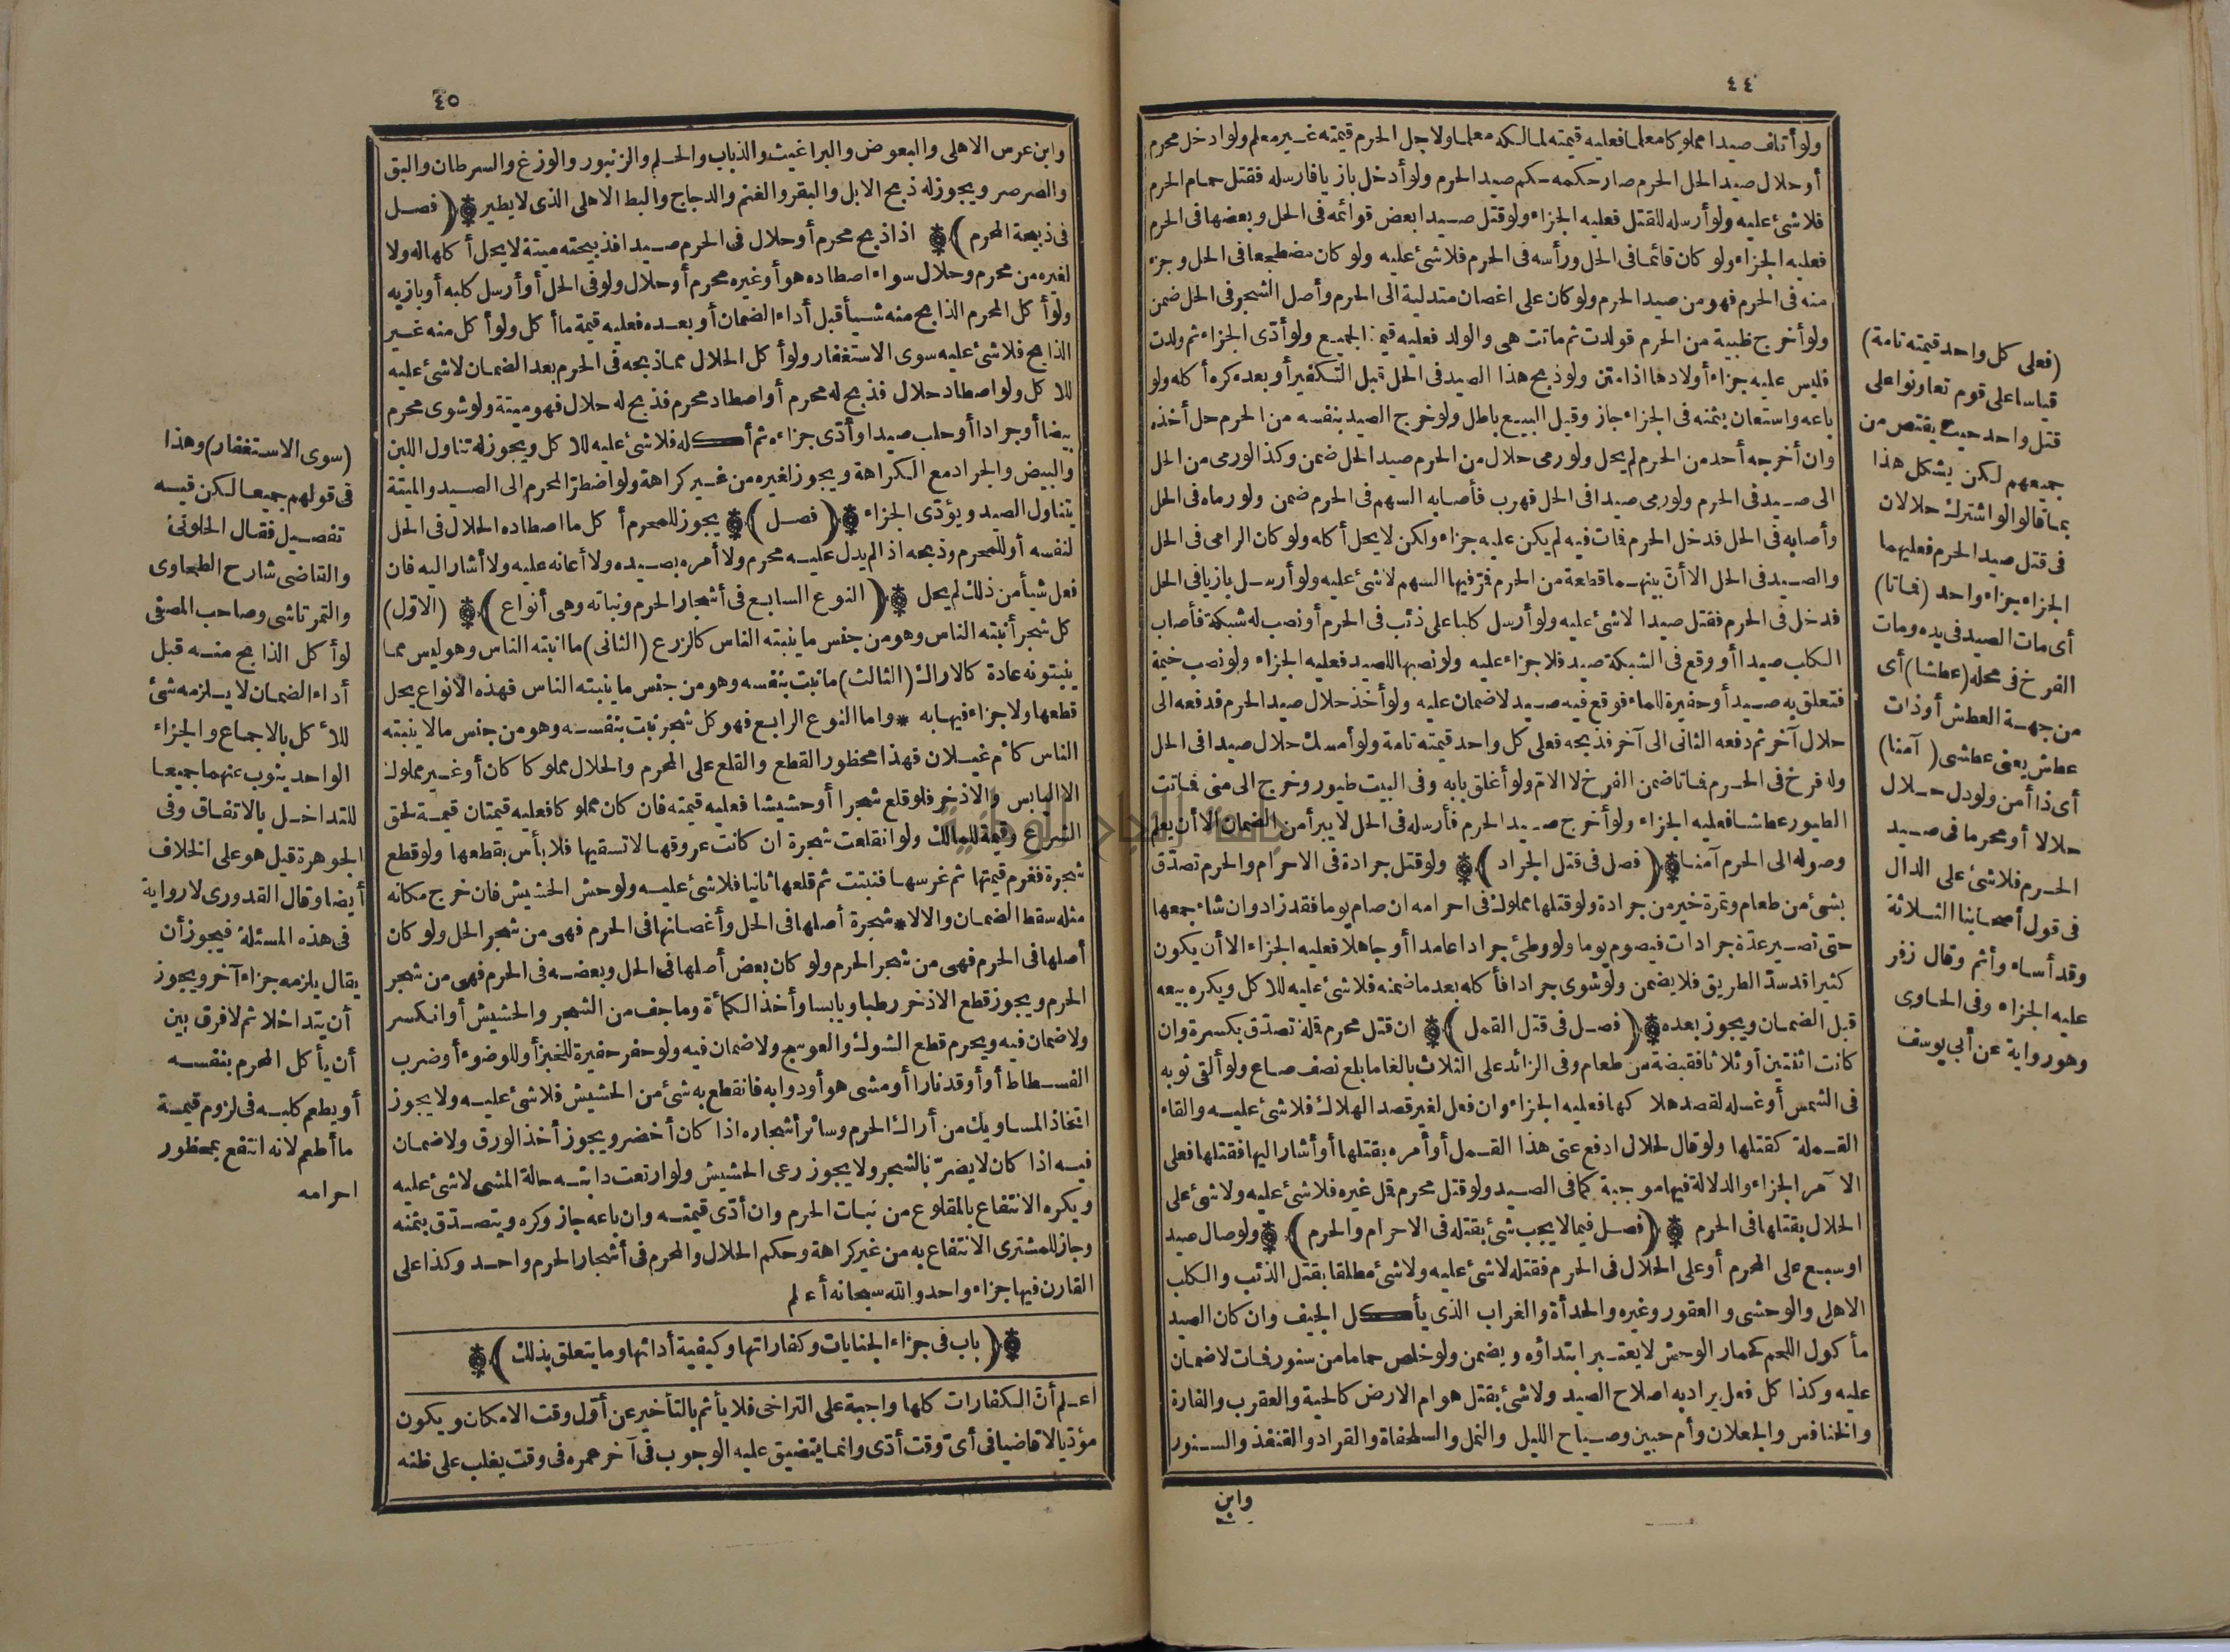 ٤٤
ولو أتلف صيدا مملوكا معلما فعليه قيمته لمالكه معلما ولاجل الحرم قيمته غير معلم ولو ادخل محرم
أو حلال صيد الحل الحرم صار حكمه حكم صيد الحرم ولو أدخل بازيا فارسله فقتل حمام الحرم
فلا شئ عليه ولو أرسله للقتل فعليه الجزاء ولو قتل صيدا بعض قوائمه فى الحل وبعضها فى الحرم
فعليه الجزاء ولو كان قائما فى الحل ورأسه فى الحرم فلا شئ عليه ولو كان مضطجعا فى الحل وجزء
منه فى الحرم فهو من صيد الحرم ولو كان على اغصان متدلية الى الحرم وأصل الشجر فى الحل ضمن
ولو أخرج ظبية من الحرم فولدت ثم ماتت هى والولد فعليه قيمة الجميع ولو أدّى الجزاء ثم ولدت
فليس عليه جزاء أولادها اذا متن ولو ذبح هذا الصيد فى الحل قبل التكفير أو بعده كره أكله ولو
باعه واستعان بثمنه فى الجزاء جاز وقيل البيع باطل ولو خرج الصيد بنفسه من الحرم حل أخذه
وان أخرجه أحد من الحرم لم يحل ولو رمى حلال من الحرم صيد الحل ضمن وكذا لو رمى من الحل
الى صيد فى الحرم ولو رمى صيدا فى الحل فهرب فأصابه السهم فى الحرم ضمن ولو رماه فى الحل
وأصابه فى الحل فدخل الحرم فمات فيه لم يكن عليه جزاء ولكن لا يحل أكله ولو كان الرامى فى الحل
والصيد فى الحل الا أنّ بينهما قطعة من الحرم فمرّ فيها السهم لا شئ عليه ولو أرسل بازيا فى الحل
فدخل فى الحرم فقتل صيدا لا شئ عليه ولو أرسل كلبا على ذئب فى الحرم أو نصب له شبكة فأصاب
الكلب صيدا أو وقع فى الشبكة صيد فلا جزاء عليه ولو نصبها للصيد فعليه الجزاء ولو نصب خيمة
فتعلق به صيد أو حفيرة للماء فوقع فيه صيد لا ضمان عليه ولو أخذ حلال صيد الحرم فدفعه الى
حلال آخر ثم دفعه الثانى الى آخر فذبحه فعلى كل واحد قيمته تامة ولو أمسك حلال صيدا فى الحل
وله فرخ فى الحرم فماتا ضمن الفرخ لا الام ولو أغلق بابه وفى البيت طيور وخرج الى منى فماتت
الطيور عطشا فعليه الجزاء ولو أخرج صيد الحرم فأرسله فى الحل لا يبرأ من الضمان الا أن يعلم
وصوله الى الحرم آمنا (فصل فى قتل الجراد) ولو قتل جرادة فى الاحرام والحرم تصدّق
بشئ من طعام وتمرة خير من جرادة ولو قتلها مملوك فى احرامه ان صام يوما فقد زاد وان شاء جمعها
حتى تصير عدّة جرادات فيصوم يوما ولو وطئ جرادا عامدا أو جاهلا فعليه الجزاء الا أن يكون
كثيرا قد سدّ الطريق فلا يضمن ولو شوى جرادا فأكله بعد ما ضمنه فلا شئ عليه للاكل ويكره بيعه
قبل الضمان ويجوز بعده (فصل فى قتل القمل) ان قتل محرم قملة تصدّق بكسرة وان
كانت اثنتين أو ثلاثا فقبضة من طعام وفى الزائد على الثلاث بالغا ما بلغ نصف صاع ولو ألقى ثوبه
فى الشمس أو غسله لقصد هلاكها فعليه الجزاء وان فعل لغير قصد الهلاك فلا شئ عليه والقاء
القملة كقتلها ولو قال لحلال ادفع عنى هذا القمل أو أمره بقتلها أو أشار اليها فقتلها فعلى
الآمر الجزاء والدلالة فيها موجبة كما فى الصيد ولو قتل محرم قمل غيره فلا شئ عليه ولا شئ على
الحلال بقتلها فى الحرم (فصل فيما لا يجب شئ بقتله فى الاحرام والحرم) ولو صال صيد
او سبع على المحرم أو على الحلال فى الحرم فقتله لا شئ عليه ولا شئ مطلقا بقتل الذئب والكلب
الاهلى والوحشى والعقور وغيره والحدأة والغراب الذى يأكل الجيف وان كان الصيد
مأكول اللحم كحمار الوحش لا يعتبر ابتداؤه ويضمن ولو خلص حماما من سنور فمات لا ضمان
عليه وكذا كل فعل يراد به اصلاح الصيد ولا شئ بقتل هوام الارض كالحية والعقرب والفارة
والخنافس والجعلان وأم حبين وصياح الليل والنمل والسلحفاة والقراد والقنفذ والسنور
وابن
(فعلى كل واحد قيمته تامة)
قياسا على قوم تعاونوا على
قتل واحد حيث يقتص من
جميعهم لكن يشكل هذا
بما قالوا لو اشترك حلالان
فى قتل صيد الحرم فعليهما
الجزاء جزاء واحد (فماتا)
أى مات الصيد فى يده ومات
الفرخ فى محله (عطشا) أى
من جهة العطش أو ذات
عطش يعنى عطشى (آمنا)
أى ذا أمن ولو دل حلال
حلالا أو محرما فى صيد
الحرم فلا شئ على الدال
فى قول أصحابنا الثلاثة
وقد أساء وأثم وقال زفر
عليه الجزاء وفى الحاوى
وهو رواية عن أبى يوسف
٤٥
وابن عرس الاهلى والبعوض والبراغيث والذباب والحلم والزنبور والوزغ والسرطان والبق
والصرصر ويجوز له ذبح الابل والبقر والغنم والدجاج والبط الاهلى الذى لا يطير (فصل
فى ذبيحة المحرم) اذا ذبح محرم أو حلال فى الحرم صيدا فذبيحته ميتة لا يحل أكلها له ولا
لغيره من محرم وحلال سواء اصطاده هو أو غيره محرم أو حلال ولو فى الحل أو أرسل كلبه أو بازيه
ولو أكل المحرم الذابح منه شيأ قبل أداء الضمان أو بعده فعليه قيمة ما أكل ولو أكل منه غير
الذابح فلا شئ عليه سوى الاستغفار ولو أكل الحلال مما ذبحه فى الحرم بعد الضمان لا شئ عليه
للاكل ولو اصطاد حلال فذبح له محرم أو اصطاد محرم فذبح له حلال فهو ميتة ولو شوى محرم
بيضا أو جرادا أو حلب صيدا وأدّى جزاءه ثم أكله فلا شئ عليه للاكل ويجوز له تناول اللبن
والبيض والجراد مع الكراهة ويجوز لغيره من غير كراهة ولو اضطرّ المحرم الى الصيد والميتة
يتناول الصيد ويؤدّى الجزاء (فصل) يجوز للمحرم أكل ما اصطاده الحلال فى الحل
لنفسه أو للمحرم وذبحه اذا لم يدل عليه محرم ولا أمره بصيده ولا أعانه عليه ولا أشار اليه فان
فعل شيأ من ذلك لم يحل (النوع السابع فى أشجار الحرم ونباته وهى أنواع) (الاوّل)
كل شجر أنبته الناس وهو من جنس ما ينبته الناس كالزرع (الثانى) ما انبته الناس وهو ليس مما
ينبتونه عادة كالاراك (الثالث) ما نبت بنفسه وهو من جنس ما ينبته الناس فهذه الانواع يحل
قطعها ولا جزاء فيها به * واما النوع الرابع فهو كل شجر نبت بنفسه وهو من جنس ما لا ينبته
الناس كأم غيلان فهذا محظور القطع والقلع على المحرم والحلال مملوكا كان أو غير مملوك
الا اليابس والاذخر فلو قلع شجرا أو حشيشا فعليه قيمته فان كان مملوكا فعليه قيمتان قيمة لحق
الشرع وقيمة للمالك ولو انقلعت شجرة ان كانت عروقها لا تسقيها فلا بأس بقطعها ولو قطع
شجرة فغرم قيمتها ثم غرسها فنبتت ثم قلعها ثانيا فلا شئ عليه ولو حش الحشيش فان خرج مكانه
مثله سقط الضمان والا لا * شجرة أصلها فى الحل وأغصانها فى الحرم فهى من شجر الحل ولو كان
أصلها فى الحرم فهى من شجر الحرم ولو كان بعض أصلها فى الحل وبعضه فى الحرم فهى من شجر
الحرم ويجوز قطع الاذخر رطبا ويابسا وأخذ الكمأة وما جف من الشجر والحشيش أو انكسر
ولا ضمان فيه ويحرم قطع الشوك والعوسج ولا ضمان فيه ولو حفر حفيرة للخبز أو للوضوء أو ضرب
الفسطاط أو أوقد نارا أو مشى هو أو دوابه فانقطع به شئ من الحشيش فلا شئ عليه ولا يجوز
اتخاذ المساويك من أراك الحرم وسائر أشجاره اذا كان أخضر ويجوز أخذ الورق ولا ضمان
فيه اذا كان لا يضرّ بالشجر ولا يجوز رعى الحشيش ولو ارتعت دابته حالة المشى لا شئ عليه
ويكره الانتفاع بالمقلوع من نبات الحرم وان أدّى قيمته وان باعه جاز وكره ويتصدّق بثمنه
وجاز للمشترى الانتفاع به من غير كراهة وحكم الحلال والمحرم فى أشجار الحرم واحد وكذا على
القارن فيها جزاء واحد والله سبحانه أعلم
(باب فى جزاء الجنايات وكفاراتها وكيفية أدائها وما يتعلق بذلك)
اعلم أنّ الكفارات كلها واجبة على التراخى فلا يأثم بالتأخير عن أوّل وقت الامكان ويكون
مؤدّيا لا قاضيا فى أىّ وقت أدّى وانما يتضيق عليه الوجوب فى آخر عمره فى وقت يغلب على ظنه
(سوى الاستغفار) وهذا
فى قولهم جميعا لكن فيه
تفصيل فقال الحلوانى
والقاضى شارح الطحاوى
والتمرتاشى وصاحب المصفى
لو أكل الذابح منه قبل
أداء الضمان لا يلزمه شئ
للأكل بالاجماع والجزاء
الواحد ينوب عنهما جميعا
للتداخل بالاتفاق وفى
الجوهرة قيل هو على الخلاف
أيضا وقال القدورى لا رواية
فى هذه المسئلة فيجوز أن
يقال يلزمه جزاء آخر ويجوز
أن يتداخلا ثم لا فرق بين
أن يأكل المحرم بنفسه
أو يطعم كلبه فى لزوم قيمة
ما أطعم لانه انتفع بمحظور
احرامه